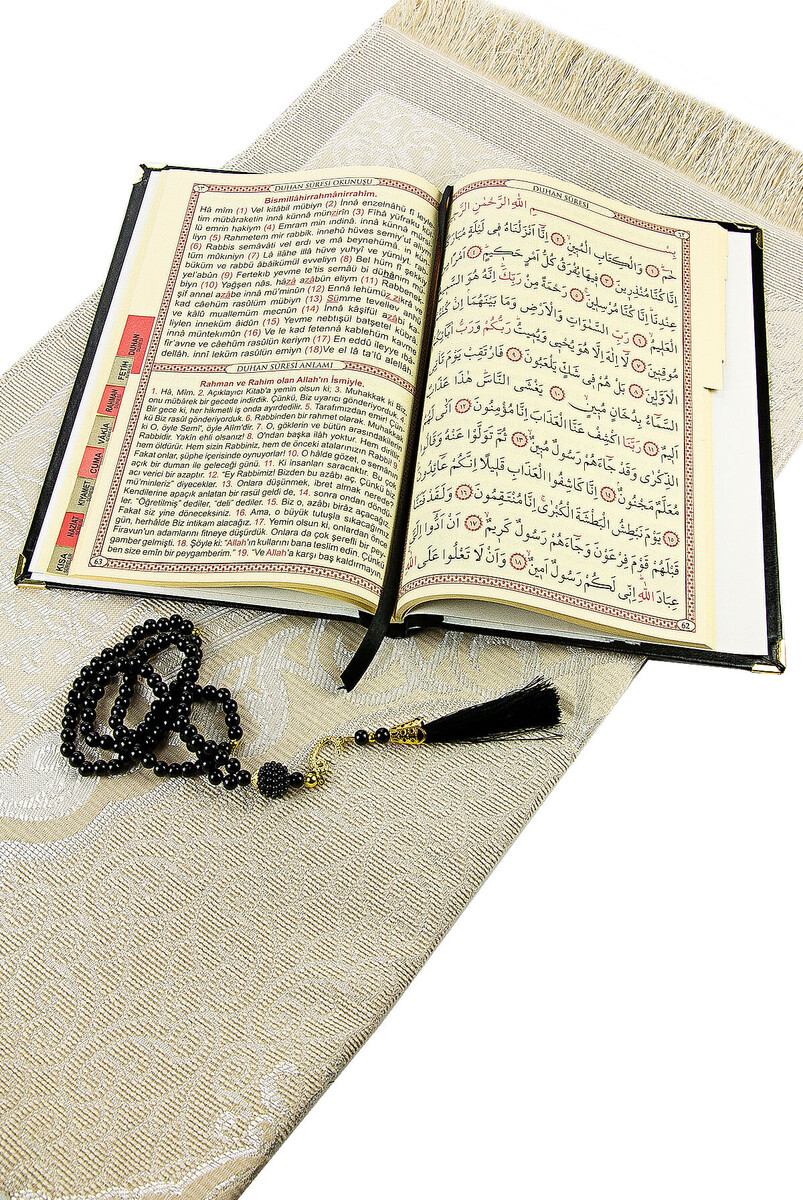 DUHAN SÛRESİ OKUNUŞU
Bismillâhirrahmânirrahîm.
Hâ mîm (1) Vel kitâbil mübiyn (2) İnnâ enzelnâhü fî leyle
tim mübâraketin innâ künnâ münzirîn (3) Fîhâ yüfraku kül
lü emrin hakiym (4) Emram min ındinâ. innâ künnâ mürsi
liyn (5) Rahmetem mir rabbik. innehû hüves semiy'ul aliym
(6) Rabbis semâvâti vel erdı ve mâ beynehümâ. in kün
tüm mûkıniyn (7) Lâ ilâhe illâ hüve yuhyî ve yümiyt. rab
büküm ve rabbü âbâikümül evveliyn (8) Bel hüm fî şekkiy
yel'abûn (9) Fertekıb yevme te'tis semâü bi dühânim mü
biyn (10) Yağşen nâs. hâzâ azâbün eliym (11) Rabbenek
şif annel azâbe innâ mü'minûn (12) Ennâ lehümüz zikrâ
kad câehüm rasûlüm mübiyn (13) Sümme tevellev anhü
ve kâlû muallemüm mecnûn (14) İnnâ kâşifül azâbi ka
liylen inneküm âidûn (15) Yevme nebtışül batşetel kübrâ.
innâ müntekımûn (16) Ve le kad fetennâ kablehüm kavme
fir'avne ve câehüm rasûlün keriym (17) En eddû ileyye ıbâ
dellâh. innî leküm rasûlün emiyn (18) Ve el lâ ta'lû alellâh
DUHAN SÛRESİ ANLAMI
Rahman ve Rahim olan Allah'ın İsmiyle.
1. Hâ, Mîm. 2. Açıklayıcı Kitab'a yemin olsun ki; 3. Muhakkak ki Biz
onu mübârek bir gecede indirdik. Çünkü, Biz uyarıcı gönderiyorduk. 4.
Bir gece ki, her hikmetli iş onda ayırdedilir. 5. Tarafımızdan emir! Çün
kü Biz rasûl gönderiyorduk. 6. Rabbinden bir rahmet olarak. Muhakkak
ki O, öyle Semî', öyle Alîm'dir. 7. O, göklerin ve bütün arasındakilerin
Rabbidir. Yakîn ehli olsanız! 8. O'ndan başka ilâh yoktur. Hem diriltir
hem öldürür. Hem sizin Rabbiniz, hem de önceki atalarınızın Rabbi! 9.
Fakat onlar, şüphe içerisinde oynuyorlar! 10. O hâlde gözet, o semânın
açık bir duman ile geleceği günü. 11. Ki insanları saracaktır. Bu çok
acı verici bir azaptır. 12. "Ey Rabbimiz! Bizden bu azâbı aç. Çünkü biz
mü'minleriz" diyecekler. 13. Onlara düşünmek, ibret almak nerede?
Kendilerine apaçık anlatan bir rasûl geldi de, 14. sonra ondan döndü
ler. "Öğretilmiş" dediler, "deli" dediler. 15. Biz o, azâbı biràz açacağız.
Fakat siz yine döneceksiniz. 16. Ama, o büyük tutuşla sıkacağımız
gün, herhâlde Biz intikam alacağız. 17. Yemin olsun ki, onlardan önce
Firavun'un adamlarını fitneye düşürdük. Onlara da çok şerefli bir pey
gamber gelmişti. 18. Şöyle ki: "Allah'ın kullarını bana teslim edin. Çünkü
ben size emîn bir peygamberim." 19. "Ve Allah'a karşı baş kaldırmayın.
63
DUHAN
FETİH
RAHMAN
VÂKIA
CUMA
KIYAMET
NAZİAT
KISA
DUHAN SÛRESİ
بِسْمِ اللّٰهِ الرَّحْمٰنِ الرَّحِيمِ
حٰمٓ ﴿١﴾ وَالْكِتَابِ الْمُبِينِ ﴿٢﴾ اِنَّٓا اَنْزَلْنَاهُ فِي لَيْلَةٍ مُبَارَكَةٍ
اِنَّا كُنَّا مُنْذِرِينَ ﴿٣﴾ فِيهَا يُفْرَقُ كُلُّ اَمْرٍ حَكِيمٍ ﴿٤﴾ اَمْرًا مِنْ
عِنْدِنَا اِنَّا كُنَّا مُرْسِلِينَ ﴿٥﴾ رَحْمَةً مِنْ رَبِّكَ اِنَّهُ هُوَ السَّمِيعُ
الْعَلِيمُ ﴿٦﴾ رَبِّ السَّمٰوَاتِ وَالْاَرْضِ وَمَا بَيْنَهُمَا اِنْ كُنْتُمْ
مُوقِنِينَ ﴿٧﴾ لَٓا اِلٰهَ اِلَّا هُوَ يُحْيِي وَيُمِيتُ رَبُّكُمْ وَرَبُّ اٰبَٓائِكُمُ
الْاَوَّلِينَ ﴿٨﴾ بَلْ هُمْ فِي شَكٍّ يَلْعَبُونَ ﴿٩﴾ فَارْتَقِبْ يَوْمَ تَأْتِي
السَّمَٓاءُ بِدُخَانٍ مُبِينٍ ﴿١٠﴾ يَغْشَى النَّاسَ هٰذَا عَذَابٌ
اَلِيمٌ ﴿١١﴾ رَبَّنَا اكْشِفْ عَنَّا الْعَذَابَ اِنَّا مُؤْمِنُونَ ﴿١٢﴾ اَنّٰى لَهُمُ
الذِّكْرٰى وَقَدْ جَٓاءَهُمْ رَسُولٌ مُبِينٌ ﴿١٣﴾ ثُمَّ تَوَلَّوْا عَنْهُ وَقَالُوا
مُعَلَّمٌ مَجْنُونٌ ﴿١٤﴾ اِنَّا كَاشِفُوا الْعَذَابِ قَلِيلًا اِنَّكُمْ عَٓائِدُونَ
﴿١٥﴾ يَوْمَ نَبْطِشُ الْبَطْشَةَ الْكُبْرٰى اِنَّا مُنْتَقِمُونَ ﴿١٦﴾ وَلَقَدْ فَتَنَّا
قَبْلَهُمْ قَوْمَ فِرْعَوْنَ وَجَٓاءَهُمْ رَسُولٌ كَرِيمٌ ﴿١٧﴾ اَنْ اَدُّٓوا اِلَيَّ
عِبَادَ اللّٰهِ اِنِّي لَكُمْ رَسُولٌ اَمِينٌ ﴿١٨﴾ وَاَنْ لَا تَعْلُوا عَلَى اللّٰهِ
62